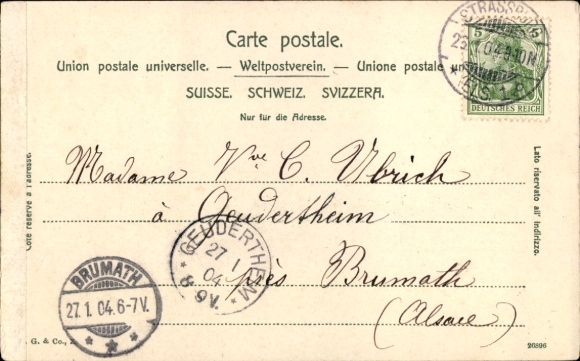 Carte postale.
Union postale universelle. — Weltpostverein. — Unione postale
SUISSE. SCHWEIZ. SVIZZERA.
Nur für die Adresse.
STRASSB
27.1.04.9-10N
* (ELS.) 1.
5
DEUTSCHES REICH
Madame Vve C. Ubrich
à Geudertheim
près Brumath
(Alsace)
GEUDERTHEIM
27 1
04
8-9V.
BRUMATH
27.1.04.6-7V.
* * *
Côté réservé à l'adresse.
Lato riservato all' indirizzo.
G. & Co.,
26896